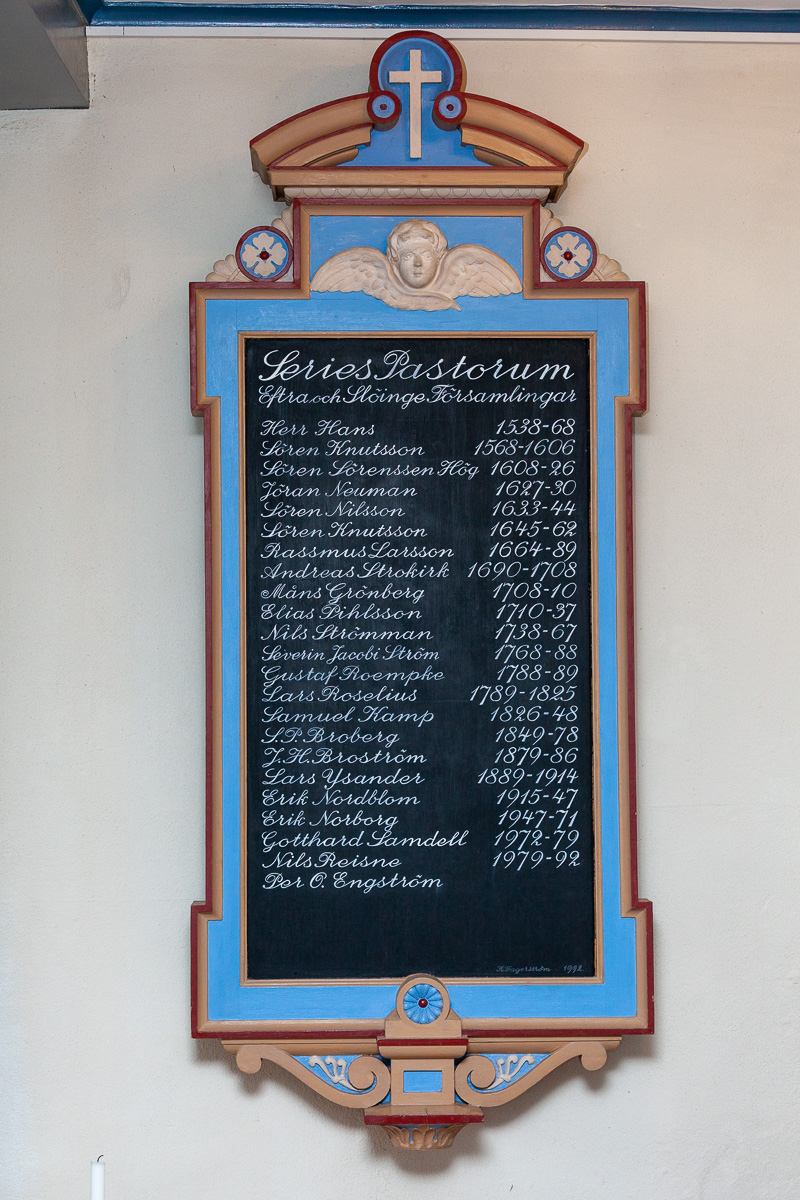 Series Pastorum
Eftra och Slöinge Församlingar
Herr Hans 1538-68
Sören Knutsson 1568-1606
Sören Sörenssen Hög 1608-26
Jöran Neuman 1627-30
Sören Nilsson 1633-44
Sören Knutsson 1645-62
Rassmus Larsson 1664-89
Andreas Strokirk 1690-1708
Måns Grönberg 1708-10
Elias Pihlsson 1710-37
Nils Strömman 1738-67
Severin Jacobi Ström 1768-88
Gustaf Roempke 1788-89
Lars Roselius 1789-1825
Samuel Kamp 1826-48
S.P. Broberg 1849-78
J.H. Broström 1879-86
Lars Ysander 1889-1914
Erik Nordblom 1915-47
Erik Norborg 1947-71
Gotthard Samdell 1972-79
Nils Reisne 1979-92
Per O. Engström
1992